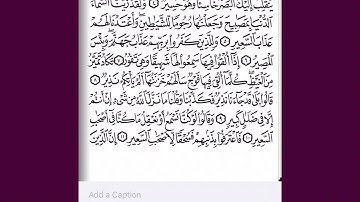 يَنقَلِبْ إِلَيْكَ ٱلْبَصَرُ خَاسِئًا وَهُوَ حَسِيرٌ ٤ وَلَقَدْ زَيَّنَّا ٱلسَّمَآءَ
ٱلدُّنْيَا بِمَصَٰبِيحَ وَجَعَلْنَٰهَا رُجُومًا لِّلشَّيَٰطِينِ وَأَعْتَدْنَا لَهُمْ
عَذَابَ ٱلسَّعِيرِ ٥ وَلِلَّذِينَ كَفَرُوا۟ بِرَبِّهِمْ عَذَابُ جَهَنَّمَ وَبِئْسَ
ٱلْمَصِيرُ ٦ إِذَآ أُلْقُوا۟ فِيهَا سَمِعُوا۟ لَهَا شَهِيقًا وَهِىَ تَفُورُ ٧ تَكَادُ تَمَيَّزُ
مِنَ ٱلْغَيْظِ كُلَّمَآ أُلْقِىَ فِيهَا فَوْجٌ سَأَلَهُمْ خَزَنَتُهَآ أَلَمْ يَأْتِكُمْ نَذِيرٌ ٨
قَالُوا۟ بَلَىٰ قَدْ جَآءَنَا نَذِيرٌ فَكَذَّبْنَا وَقُلْنَا مَا نَزَّلَ ٱللَّهُ مِن شَىْءٍ إِنْ أَنتُمْ
إِلَّا فِى ضَلَٰلٍ كَبِيرٍ ٩ وَقَالُوا۟ لَوْ كُنَّا نَسْمَعُ أَوْ نَعْقِلُ مَا كُنَّا فِىٓ أَصْحَٰبِ
ٱلسَّعِيرِ ١٠ فَٱعْتَرَفُوا۟ بِذَنۢبِهِمْ فَسُحْقًا لِّأَصْحَٰبِ ٱلسَّعِيرِ ١١ إِنَّ ٱلَّذِينَ
Add a Caption